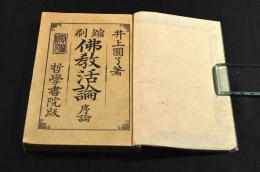 井上圓了著
縮刷
佛教活論
序論
哲學書院版